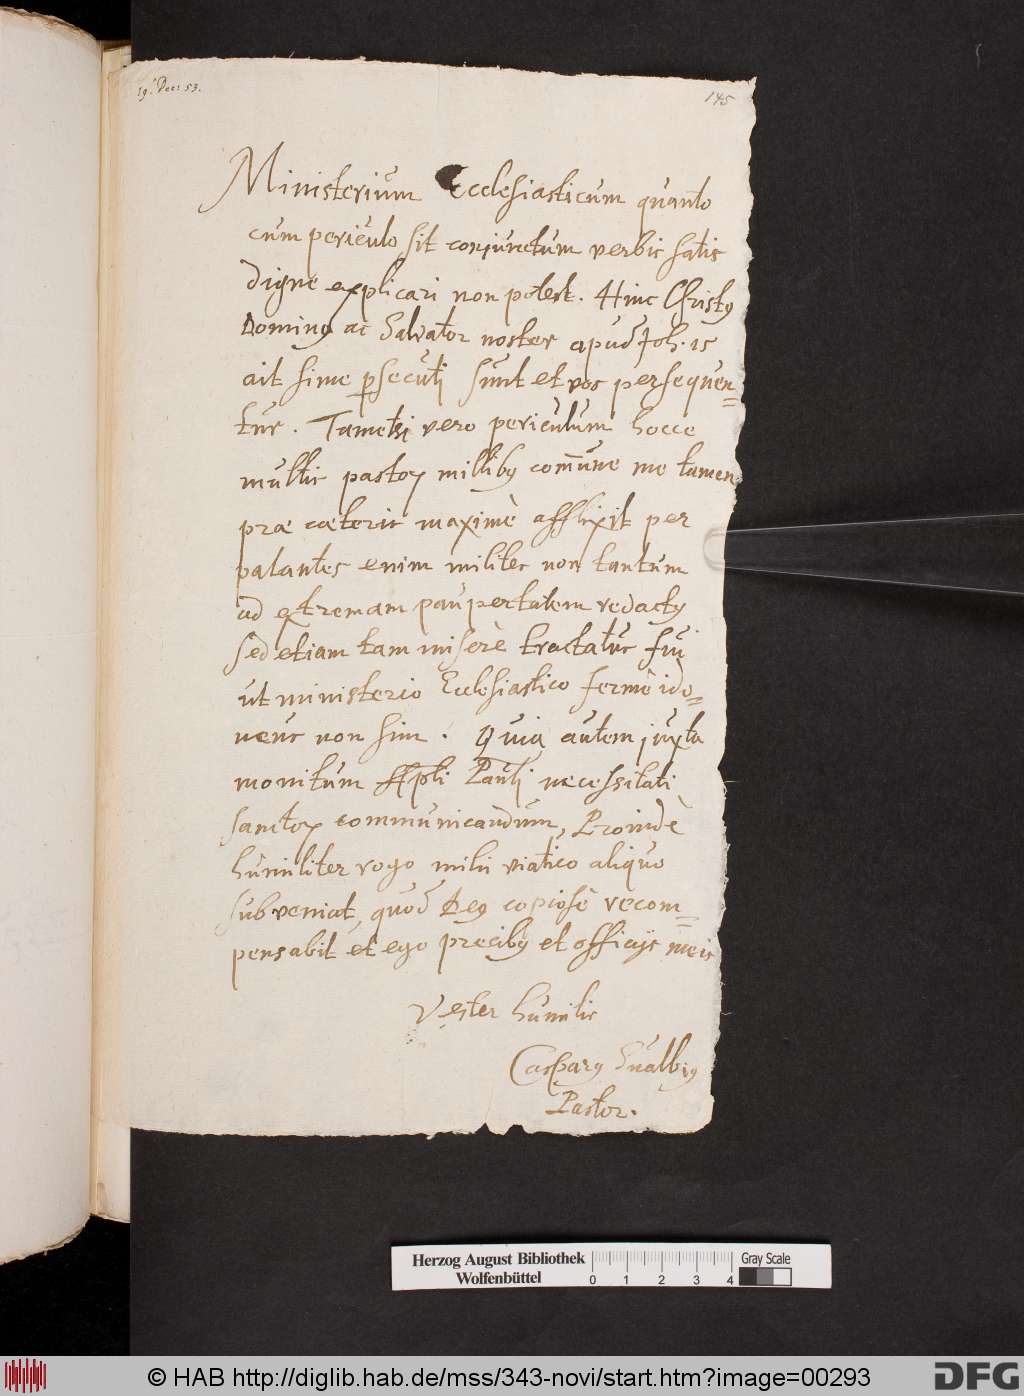 19. Dec: 53.
145
Ministerium Ecclesiasticum quanto
cum periculo sit conjunctum verbis satis
digne explicari non potest. Hinc Christꝰ
Dominꝰ ac Salvator noster apud Joh. 15
ait si me ꝑsecuti sunt et vos persequen=
tur. Tametsi vero periculum hocce
multis pastoꝝ millibꝰ com̄une me tamen
præ cæteris maximè afflixit per
palantes enim milites non tantum
ad extremam paupertatem redactꝰ
sed etiam tam miserè tractatus fui
ut ministerio Ecclesiastico fermè ido=
neus non sim. Quia autem juxta
monitum Apli Pauli necessitati
sanctoꝝ communicandum, Proindè
humiliter rogo mihi viatico aliquo
subveniat, quod Deꝰ copiosè recom=
pensabit et ego precibꝰ et officijs meis
Vester humilis
Casparꝰ
Pastor.
Herzog August Bibliothek
Wolfenbüttel
0 1 2 3 4
Gray Scale
© HAB http://diglib.hab.de/mss/343-novi/start.htm?image=00293
DFG